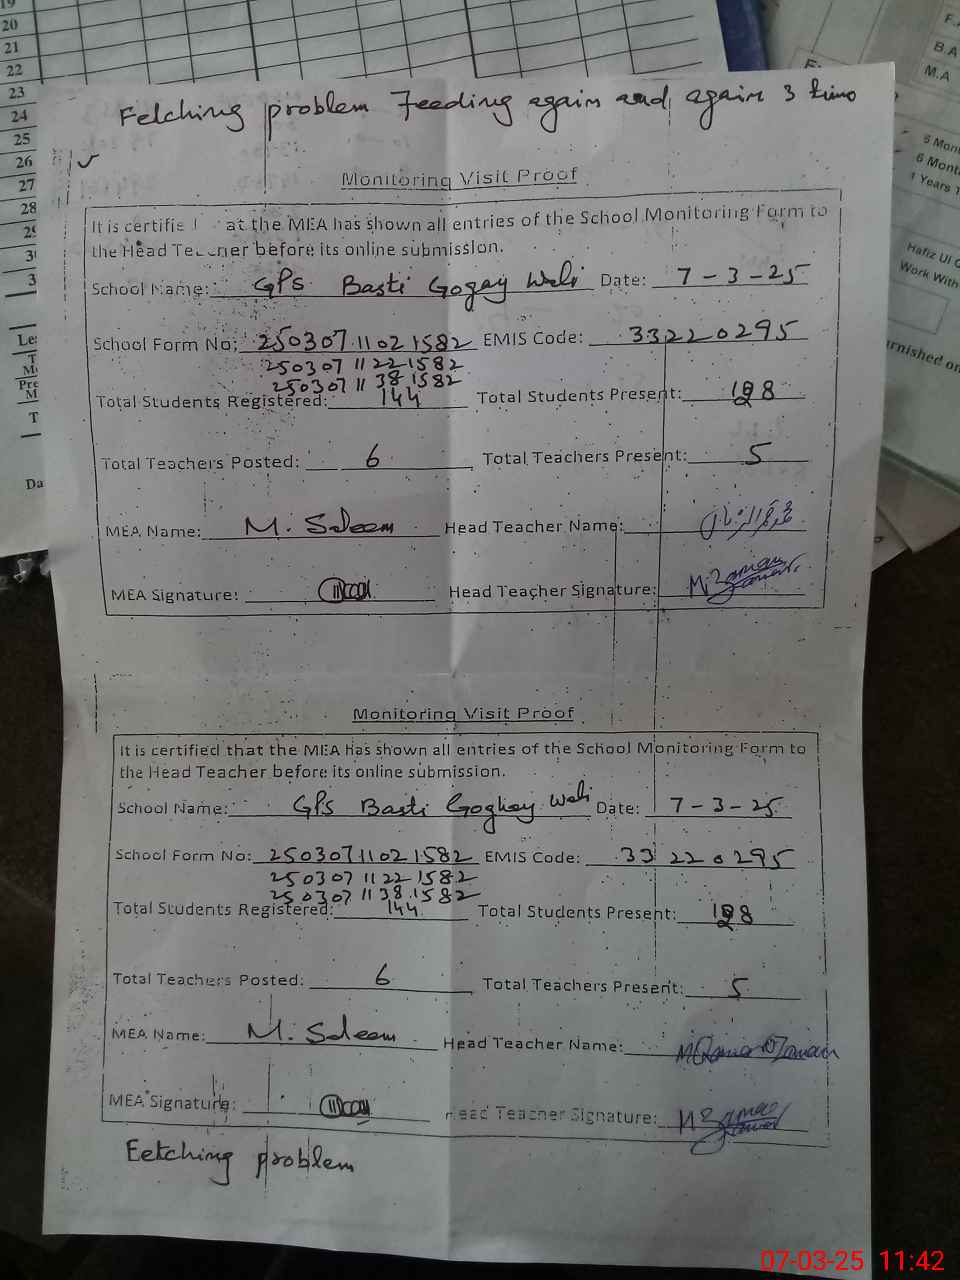 19
20
21
22
23
24
25
26
27
28
Da
F.A
B.A
M.A
6 Mont
6 Mont
1 Years T
Hafiz Ul
Work With
urnished on
Fetching problem Feeding again and again 3 time
Monitoring Visit Proof
It is certifie at the MEA has shown all entries of the School Monitoring Form to
the Head Te cher before its online submission.
School Name: GPS Basti Gogay Wali Date: 7-3-25
School Form No: 250307 11 02 1582 EMIS Code: 33220295
250307 11 22 1582
250307 11 38 1582
Total Students Registered: 144 Total Students Present:
Total Teachers Posted: 6 Total Teachers Present: 5
MEA Name: M. Saleem Head Teacher Name:
MEA Signature: Head Teacher Signature:
Monitoring Visit Proof
It is certified that the MEA has shown all entries of the School Monitoring Form to
the Head Teacher before its online submission.
School Name: GPS Basti Goghay Wali Date: 7-3-25
School Form No: 250307 11 02 1582 EMIS Code: 33220295
250307 11 22 1582
250307 11 38 1582
Total Students Registered: 144 Total Students Present:
Total Teachers Posted: 6 Total Teachers Present: 5
MEA Name: M. Saleem Head Teacher Name:
MEA Signature: Head Teacher Signature:
Eetching problem
07-03-25 11:42